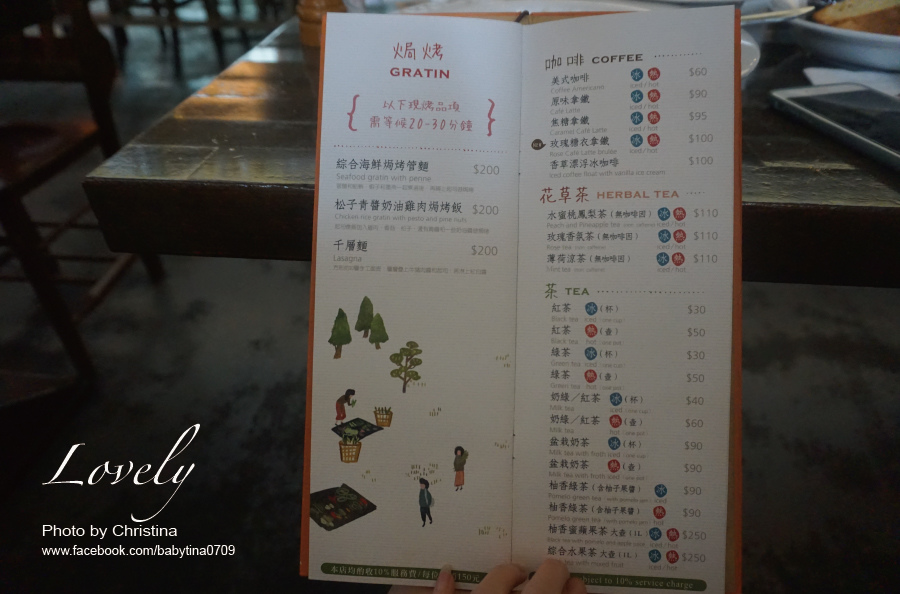 焗烤
GRATIN
以下現烤品項
需等候20-30分鐘
綜合海鮮焗烤管麵 $200
Seafood gratin with penne
松子青醬奶油雞肉焗烤飯 $200
Chicken rice gratin with pesto and pine nuts
千層麵 $200
Lasagna
本店均酌收10%服務費/每位
150元
咖啡 COFFEE
美式咖啡 冰 熱 $60
Coffee Americano iced / hot
原味拿鐵 冰 熱 $90
Cafe Latte iced / hot
焦糖拿鐵 冰 熱 $95
Caramel Cafe Latte iced / hot
玫瑰糖衣拿鐵 冰 熱 $100
Rose Cafe Latte brulee iced / hot
香草漂浮冰咖啡 $100
Iced coffee float with vanilla ice cream
花草茶 HERBAL TEA
水蜜桃鳳梨茶(無咖啡因) 冰 熱 $110
Peach and Pineapple tea iced / hot
玫瑰香氛茶(無咖啡因) 冰 熱 $110
Rose tea iced / hot
薄荷涼茶(無咖啡因) 冰 熱 $110
Mint tea iced / hot
茶 TEA
紅茶 冰(杯) $30
Black tea iced / one cup
紅茶 熱(壺) $50
Black tea hot / one pot
綠茶 冰(杯) $30
Green tea iced / one cup
綠茶 熱(壺) $50
Green tea hot / one pot
奶綠/紅茶 冰(杯) $40
Milk tea iced / one cup
奶綠/紅茶 熱(壺) $60
Milk tea hot / one pot
盆栽奶茶 冰(杯) $90
Milk tea with froth iced / one cup
盆栽奶茶 熱(壺) $90
Milk tea with froth hot / one pot
柚香綠茶(含柚子果醬) 冰 $90
Pomelo green tea iced
柚香綠茶(含柚子果醬) 熱 $90
Pomelo green tea hot
柚香蜜蘋果茶 大壺(1L) 冰 熱 $250
iced / hot
綜合水果茶 大壺(1L) 冰 熱 $250
iced / hot
subject to 10% service charge
Lovely
Photo by Christina
www.facebook.com/babytina0709